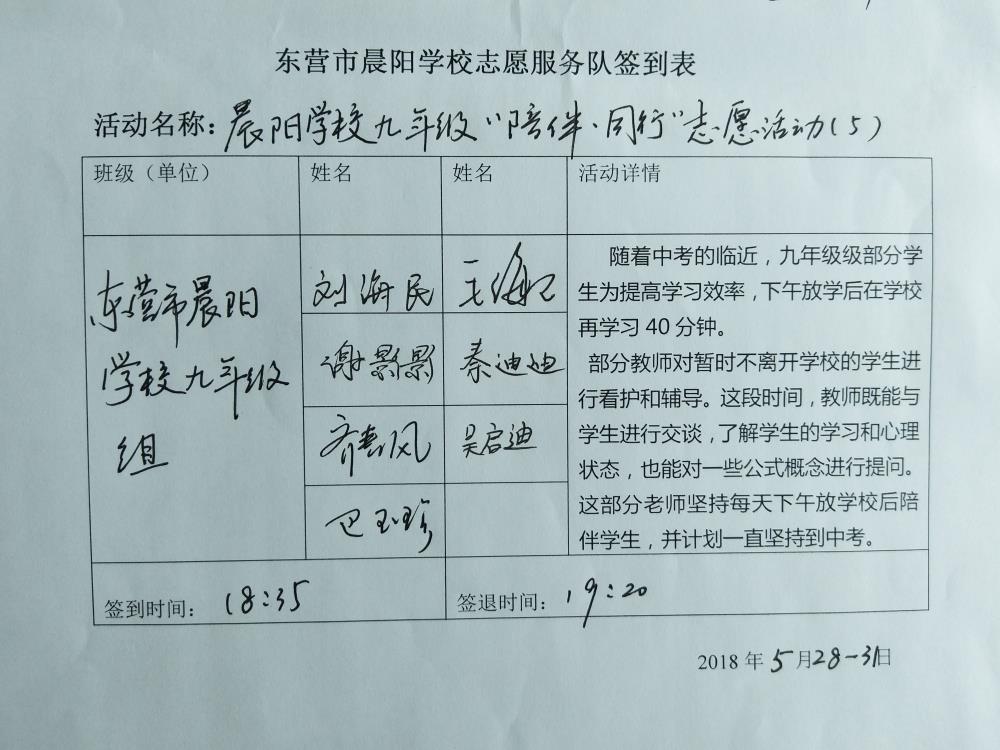 东营市晨阳学校志愿服务队签到表
活动名称：晨阳学校九年级“陪伴·同行”志愿活动(5)
班级（单位） 姓名 姓名 活动详情
东营市晨阳
学校九年级
组
刘海民
谢影影 秦迪迪
齐春风 吴启迪
巴玉珍
随着中考的临近，九年级级部分学
生为提高学习效率，下午放学后在学校
再学习 40 分钟。
部分教师对暂时不离开学校的学生进
行看护和辅导。这段时间，教师既能与
学生进行交谈，了解学生的学习和心理
状态，也能对一些公式概念进行提问。
这部分老师坚持每天下午放学校后陪
伴学生，并计划一直坚持到中考。
签到时间： 18:35 签退时间： 19:20
2018 年 5 月 28-31 日